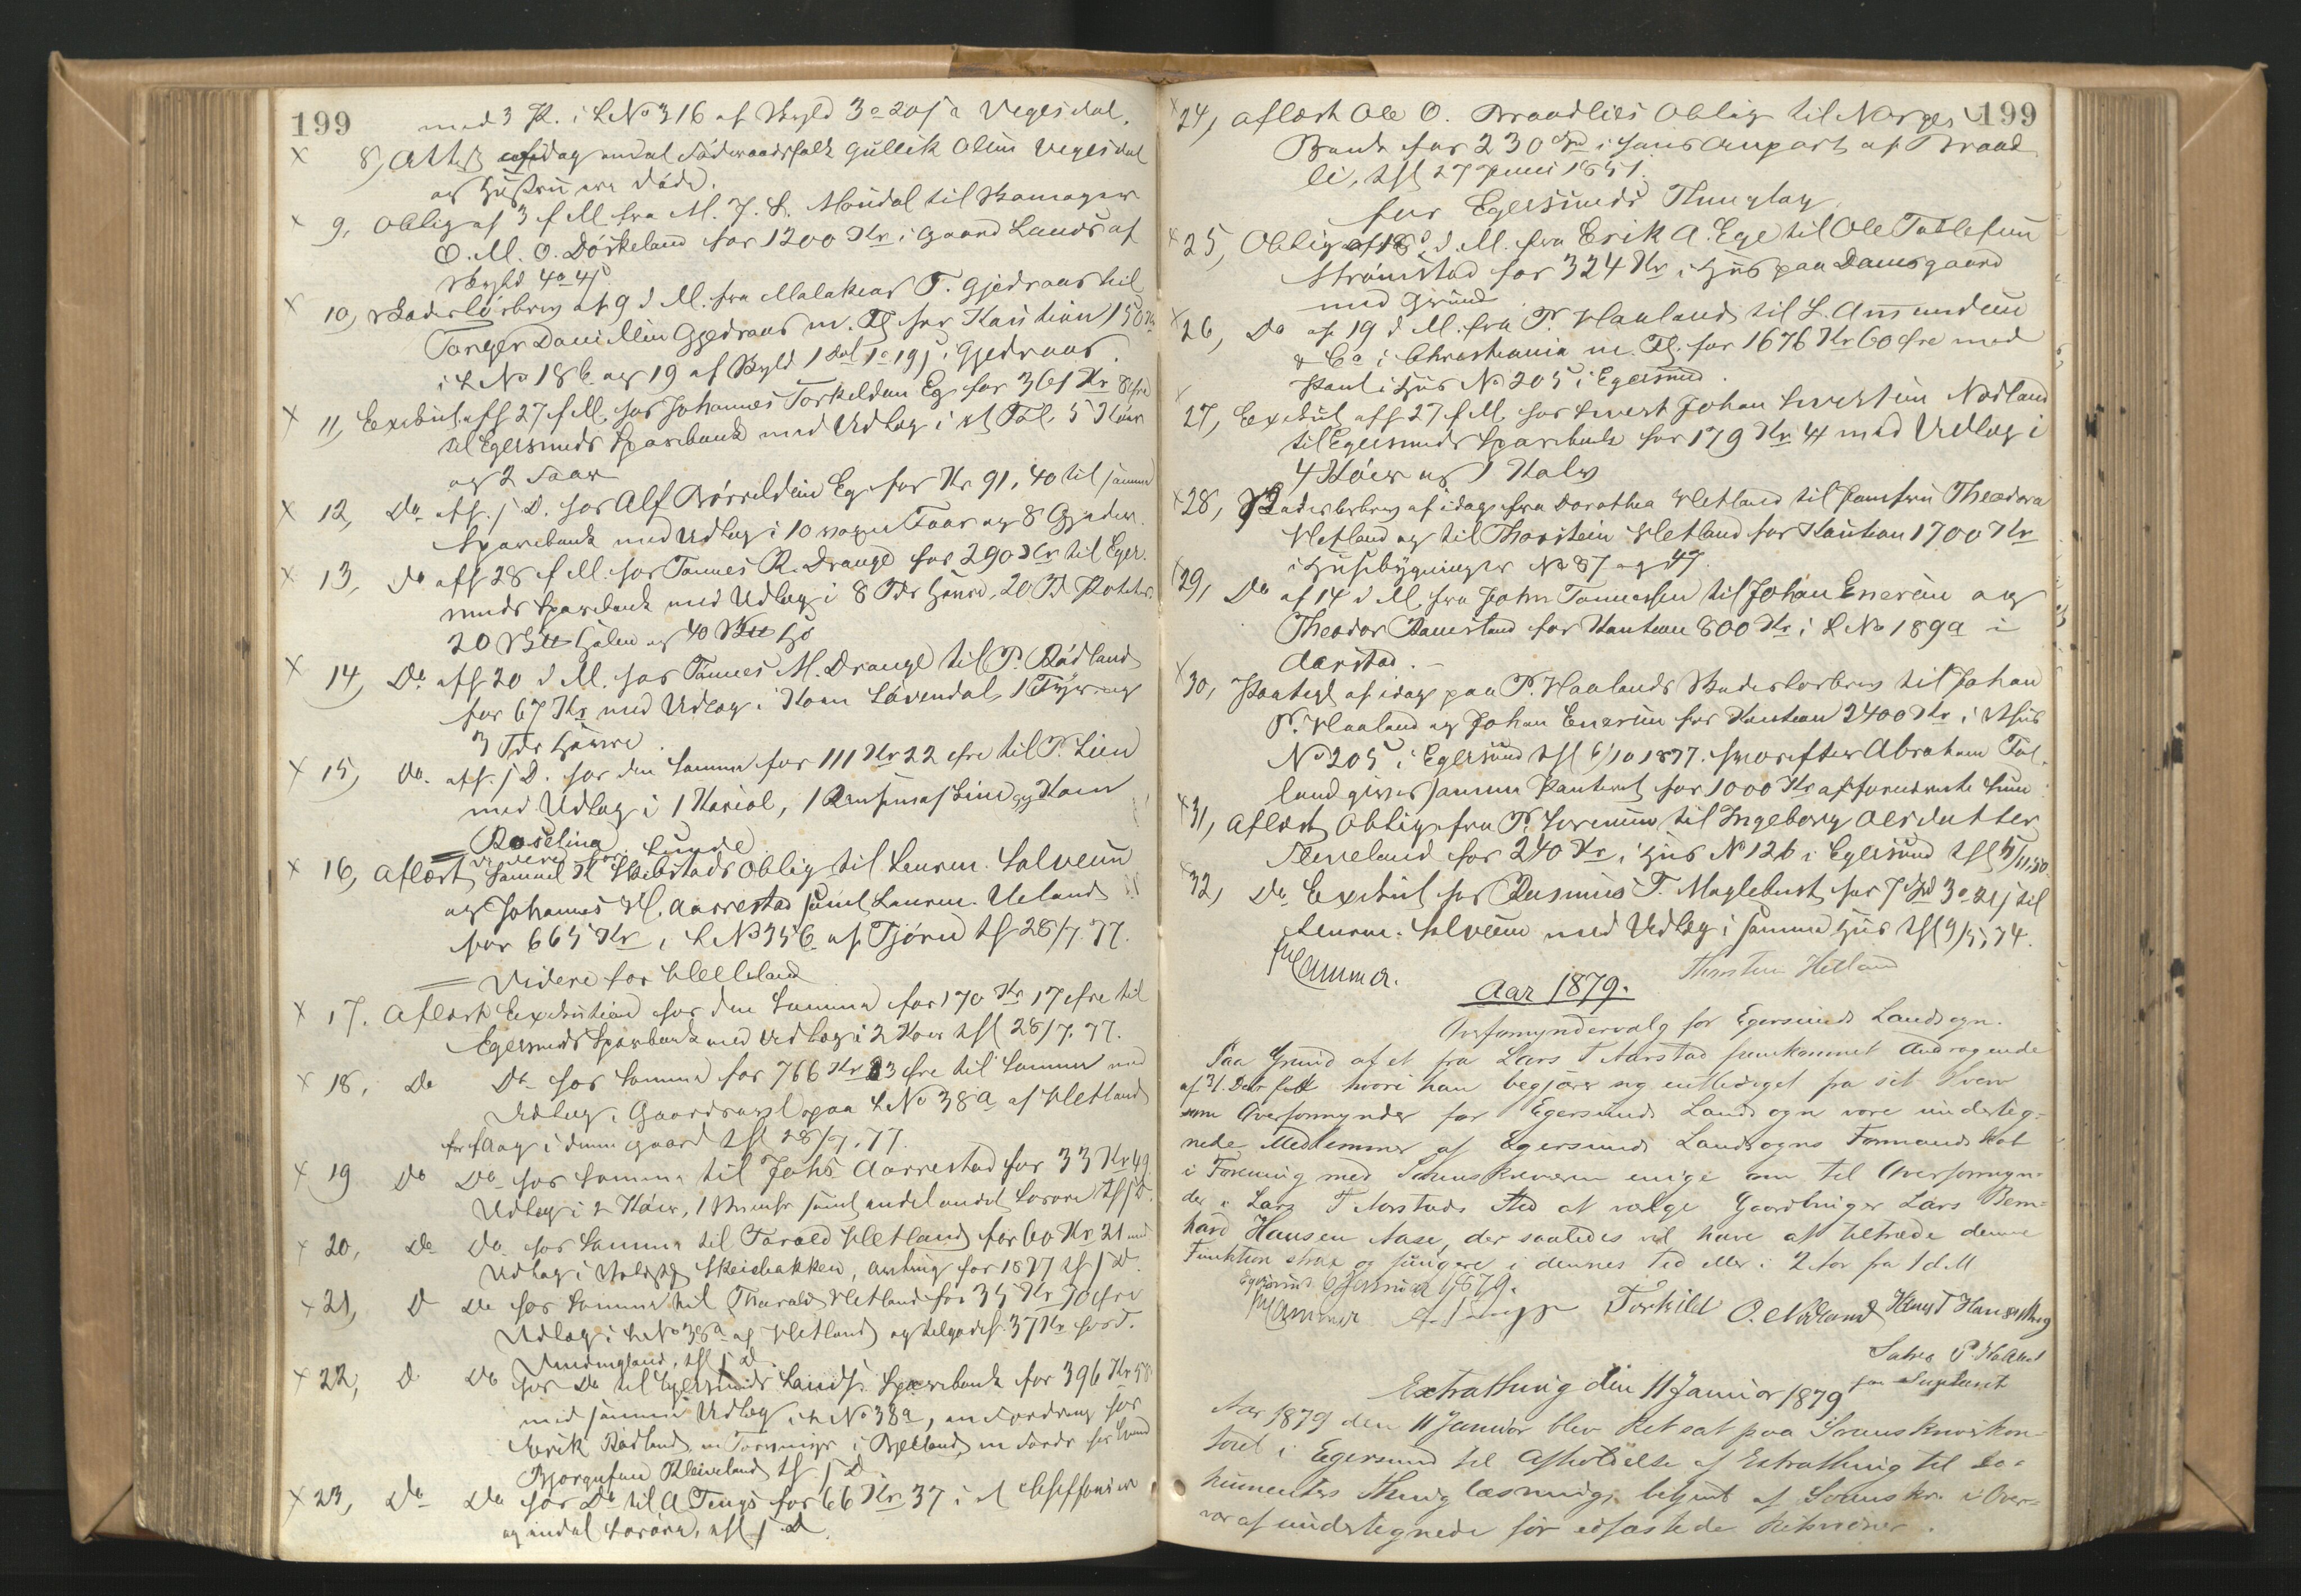 199
med 3 P. i LNo 316 af Skyld 3 o 20 s a Vegesdal.
8, Attest af idag andal Føderaadsfolk Gullik Olsen Vegesdal
og Hustru ere døde.
9, Oblig af 3 f M. fra M. J. L. Moudal til
O. M. O. Dørkeland for 1200 Kr i Gaard Lands af
Skyld 4 o 4 s
10, Skadesløsbrev af 9 d M. fra Malakias T. Gjedraas til
Tønger Danielsen Gjedraas m. Fl for Kaution 150 Kr
i L No 18 b og 19 af Skyld 1 Dal 1 o 19 s i Gjedraas.
11, Exekut. aff 27 f M. hos Johannes Torkeldsen Eg for 361 Kr 8 Øre
til Egersunds Sparebank med Udlæg i et Føl, 5 Køer
og 2 Faar
12, Do aff. s D. hos Alf Børrildsen Eg for Kr 91,40 til samme
Sparebank med Udlæg i 10 Faar og 8 Gjeder.
13, Do aff 28 f M. hos Tønnes R. Drange for 290 Kr til Eger-
sunds Sparebank med Udlæg i 8 Tdr Havre, 20 Td Poteter
20 Halm og 40 Hø
14, Do aff 20 d M. hos Tønnes M. Drange til P. Rødland
for 67 Kr med Udlæg i Koen Løvendal, 1 Tyr og
3 Tdr Havre.
15, Do. aff. s D. hos den Samme for 111 Kr 22 Øre til P. Lien
med Udlæg i 1 Kariol, 1 Rensemaskine og Koen
Roselina
= Videre for Lunde
16, Aflæst Samuel H Skibstads Oblig til Lensm. Salvesen
og Johannes H. Aarrestad samt Lensm. Ueland
for 665 Kr i L No 35 b af Tjørn tl 28/7.77.
= Videre for Helleland
17. Aflæst Exekution hos den Samme for 170 Kr 17 Øre til
Egersunds Sparebank med Udlæg i 2 Køer tl 28/7.77.
18, Do Do hos Samme for 766 Kr 23 Øre til Samme med
Udlæg i paa L No 38 a af Hetland
i denne Gaard tl 28/7.77.
19 Do Do hos Samme til Johs Aarrestad for 33 Kr 49
Udlæg i 2 Køer, 1 samt andet Løsøre tl s D.
20, Do Do hos Samme til Tarald Hetland for 60 Kr 21 med
Udlæg i Skeiebakken, for 1877 tl s D.
21, D Do hos Samme til Tharald Hetland for 35 Kr 70 Øre
Udlæg i L No 38 a af Hetland og tilgodeh. 37 Kr hos T.
tl s D
22, D Do hos Do til Egersunds Lands. Sparebank for 396 Kr 58
med samme Udlæg i L No 38 a, en Fordring hos
Erik Rødland, en i Bjelland, en Fordr hos
Kleiveland tl s D
23, Do Do hos Do til A Tengs for 66 Kr 37 i et
og andet Løsøre, tl s D.
199
24, Aflæst Ole O. Braadlies Oblig til Norges
Bank for 230 Spd i hans Anpart af Braad-
lie, tl 27 Juni 1851.
for Egersunds Thinglag
25, Oblig af 18 d. M. fra Erik A. Ege til Ole Tollefsen
Strømstad for 324 Kr i Hus paa Damsgaard
med Grund
26, Do af 19 d M. fra P. Haaland til L. Amundsen
& Co i Christiania m. Fl. for 1676 Kr 60 Øre med
Pant i Hus No 205 i Egersund.
27, Exekut aff 27 f M. hos Sivert Johan Sivertsen Nodland
til Egersunds Sparebank for 179 Kr 44 med Udlæg i
4 Køer og 1 Kalv
28, Skadesløsbrev af idag fra Dorothea Hetland til Jomfru Theodora
Hetland og til Thorstein Hetland for Kaution 1700 Kr
i Husebygninger No 87 og 47.
29, Do af 14 d M. fra John Tønnessen til Johan Enersen og
Theodor Ramsland for Kaution 800 Kr i L No 189 a i
Aarstad.
30, Paategn af idag paa P. Haalands Skadesløsbrev til Johan
P. Haaland og Johan Enersen for Kaution 2400 Kr i Hus
No 205 i Egersund tl 6/10 1877. hvorefter Abraham Fol-
land gives samme Panteret for 1000 Kr af forundrevnte Sum
31, Aflæst Oblig fra P. Sørensen til Ingeborg Olsdatter
Kleveland for 240 Kr i Hus No 126 i Egersund tl 5/11,50.
32, Do Exekut hos Rasmus T. Maglebust for 7 Spd 3 o 21 s til
Lensm. Salvesen med Udlæg i samme Hus tl 9/5,74.
Hammer. Thorstein Hetland
Aar 1879.
Overformyndervalg for Egersunds Landsogn.
Paa Grund af et fra Lars T Aarstad fremkommet Andragende
af 31. Decbr hvori han begjærer sig entlediget fra sit Hverv
som Overformynder for Egersunds Landsogn vare underteg-
nede Medlemmer af Egersunds Landsogns Formandskab
i Forening med Sorenskriveren enige om til Overformyn-
der i Lars T Aarstads Sted at vælge Gaardbruger Lars Bern-
hard Hansen Aase, der saaledes vil have at tiltræde denne
Funktion strax og fungere i dennes Tid eller i 2 Aar fra 1 d. M
Egersund 6 Januar 1879.
Hammer A. Tengs Torkild O. Nodland
Salve P. Haaland
som Suppleant
Extrathing den 11 Januar 1879
Aar 1879 den 11 Januar blev Ret sat paa Sorenskriverkon-
toret i Egersund til Afholdelse af Extrathing til Do-
kumenters Thinglæsning, betjent af Sorenskr. i Over-
vær af undertegnede før edfæstede Retsvidner.